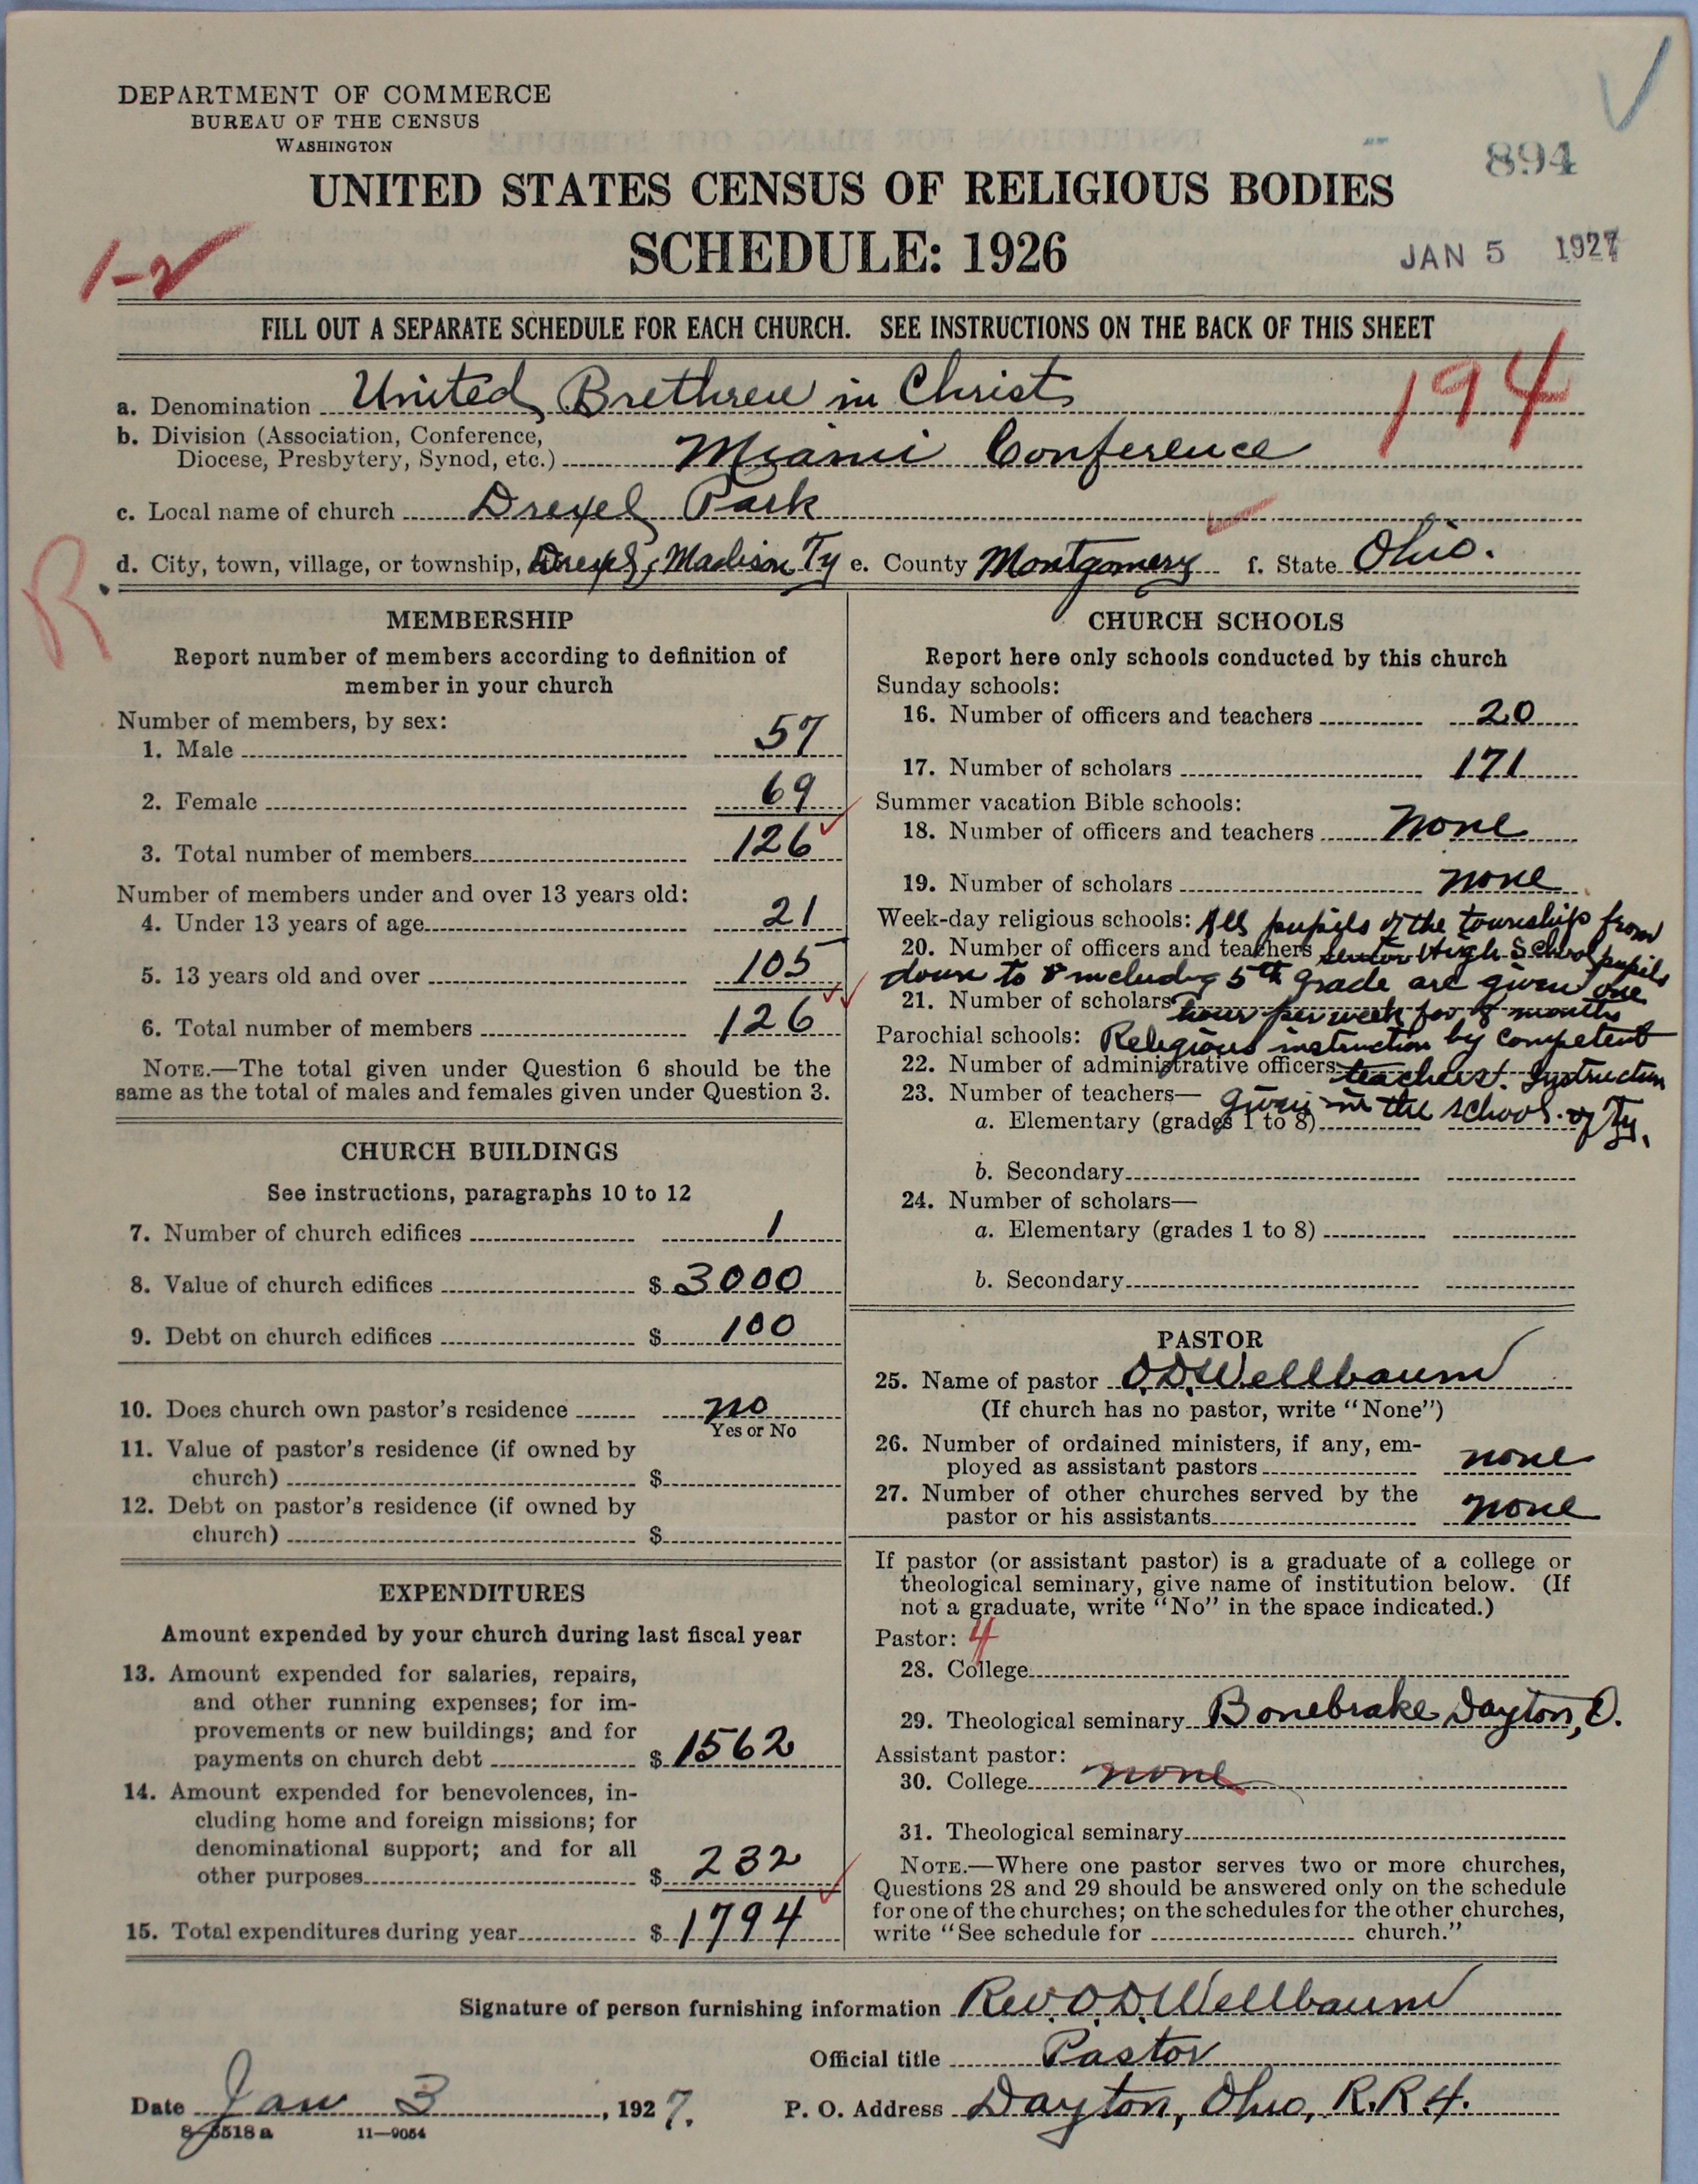 DEPARTMENT OF COMMERCE
BUREAU OF THE CENSUS
WASHINGTON
894
UNITED STATES CENSUS OF RELIGIOUS BODIES
SCHEDULE: 1926
1-2
JAN 5 1927
FILL OUT A SEPARATE SCHEDULE FOR EACH CHURCH. SEE INSTRUCTIONS ON THE BACK OF THIS SHEET
194
a. Denomination United Brethren in Christ
b. Division (Association, Conference,
Diocese, Presbytery, Synod, etc.) Miami Conference
c. Local name of church Drexel Park
d. City, town, village, or township, Drexel, Madison Ty e. County Montgomery f. State Ohio.
R
MEMBERSHIP
Report number of members according to definition of
member in your church
Number of members, by sex:
1. Male 57
2. Female 69
3. Total number of members 126
Number of members under and over 13 years old:
4. Under 13 years of age 21
5. 13 years old and over 105
6. Total number of members 126
NOTE.—The total given under Question 6 should be the
same as the total of males and females given under Question 3.
CHURCH BUILDINGS
See instructions, paragraphs 10 to 12
7. Number of church edifices 1
8. Value of church edifices $ 3000
9. Debt on church edifices $ 100
10. Does church own pastor's residence no
Yes or No
11. Value of pastor's residence (if owned by
church) $
12. Debt on pastor's residence (if owned by
church) $
EXPENDITURES
Amount expended by your church during last fiscal year
13. Amount expended for salaries, repairs,
and other running expenses; for im-
provements or new buildings; and for
payments on church debt $ 1562
14. Amount expended for benevolences, in-
cluding home and foreign missions; for
denominational support; and for all
other purposes $ 232
15. Total expenditures during year $ 1794
CHURCH SCHOOLS
Report here only schools conducted by this church
Sunday schools:
16. Number of officers and teachers 20
17. Number of scholars 171
Summer vacation Bible schools:
18. Number of officers and teachers none
19. Number of scholars none
Week-day religious schools: All pupils of the township from
20. Number of officers and teachers senior High School pupils
down to & including 5th grade are given one
21. Number of scholars hour per week for 8 months
Parochial schools: Religious instruction by competent
22. Number of administrative officers teachers. Instruction
23. Number of teachers— given in the school of Ty.
a. Elementary (grades 1 to 8)
b. Secondary
24. Number of scholars—
a. Elementary (grades 1 to 8)
b. Secondary
PASTOR
25. Name of pastor O.D. Wellbaum
(If church has no pastor, write "None")
26. Number of ordained ministers, if any, em-
ployed as assistant pastors none
27. Number of other churches served by the
pastor or his assistants none
If pastor (or assistant pastor) is a graduate of a college or
theological seminary, give name of institution below. (If
not a graduate, write "No" in the space indicated.)
Pastor: 4
28. College
29. Theological seminary Bonebrake Dayton, O.
Assistant pastor:
30. College none
31. Theological seminary
NOTE.—Where one pastor serves two or more churches,
Questions 28 and 29 should be answered only on the schedule
for one of the churches; on the schedules for the other churches,
write "See schedule for church."
Signature of person furnishing information Rev. O.D. Wellbaum
Official title Pastor
Date Jan 3, 1927. P. O. Address Dayton, Ohio, R.R. 4.
8-5518a 11—9054